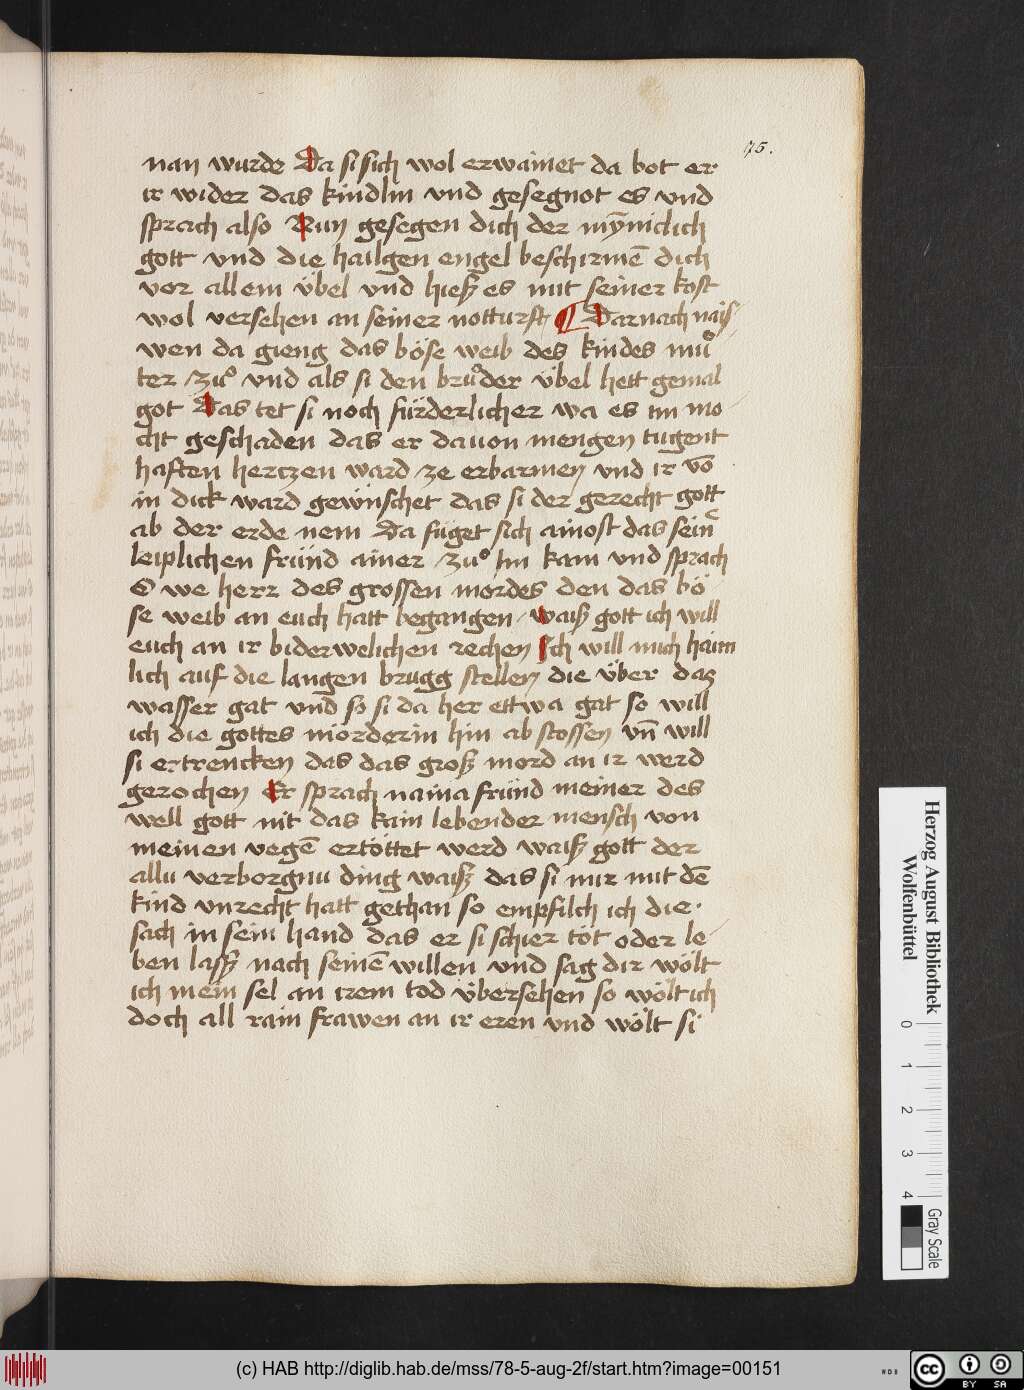 75.
nan wurde Da si sich wol erwainet da bot er
ir wider das kindlin vnd gesegnot es vnd
sprach also Nun gesegen dich der mӯniclich
gott vnd die hailgen engel beschirmē dich
vor allem v̈bel vnd hieß es mit seiner kost
wol versehen an seiner notturft Darnach nais
wen da gieng das böse weib des kindes mů
ter zuͦ vnd als si den bruͦder v̈bel hett gemal
got Das tet si noch fürderlicher wa es im mo
cht geschaden das er dauon mengen tugent
haften hertzen ward ze erbarmen vnd ir vō
in dick ward gewünschet das si der gerecht gott
ab der erde nem Da füget sich ainost das sein
leiplichen fründ ainer zuͦ Im kam vnd sprach
O we herr des grossen mordes den das bö
se weib an euch hatt begangen waiß gott ich will
euch an ir biderwelichen rechen Ich will mich haim
lich auf die langen brugg stellen die v̈ber das
wasser gat vnd so si da her ettwa gat so will
ich die gottes mörderin hin ab stossen vn̄ will
si ertrencken das das groß mord an ir werd
gerochen Er sprach naina fründ meiner des
well gott nit das kain lebender mensch von
meinen vegē ertöttet werd waiß gott der
allu verborgnu ding waiß das si mir mit dē
kind vnrecht hatt gethan so empfilch ich die
sach in sein hand das er si schier töt oder le
ben lasß nach seinē willen vnd sag dir wölt
ich mein sel an irem tod v̈bersehen so wölt ich
doch all rain frawen an ir eren vnd wölt si
Herzog August Bibliothek
Wolfenbüttel
0 1 2 3 4
Gray Scale
(c) HAB http://diglib.hab.de/mss/78-5-aug-2f/start.htm?image=00151
cc BY SA